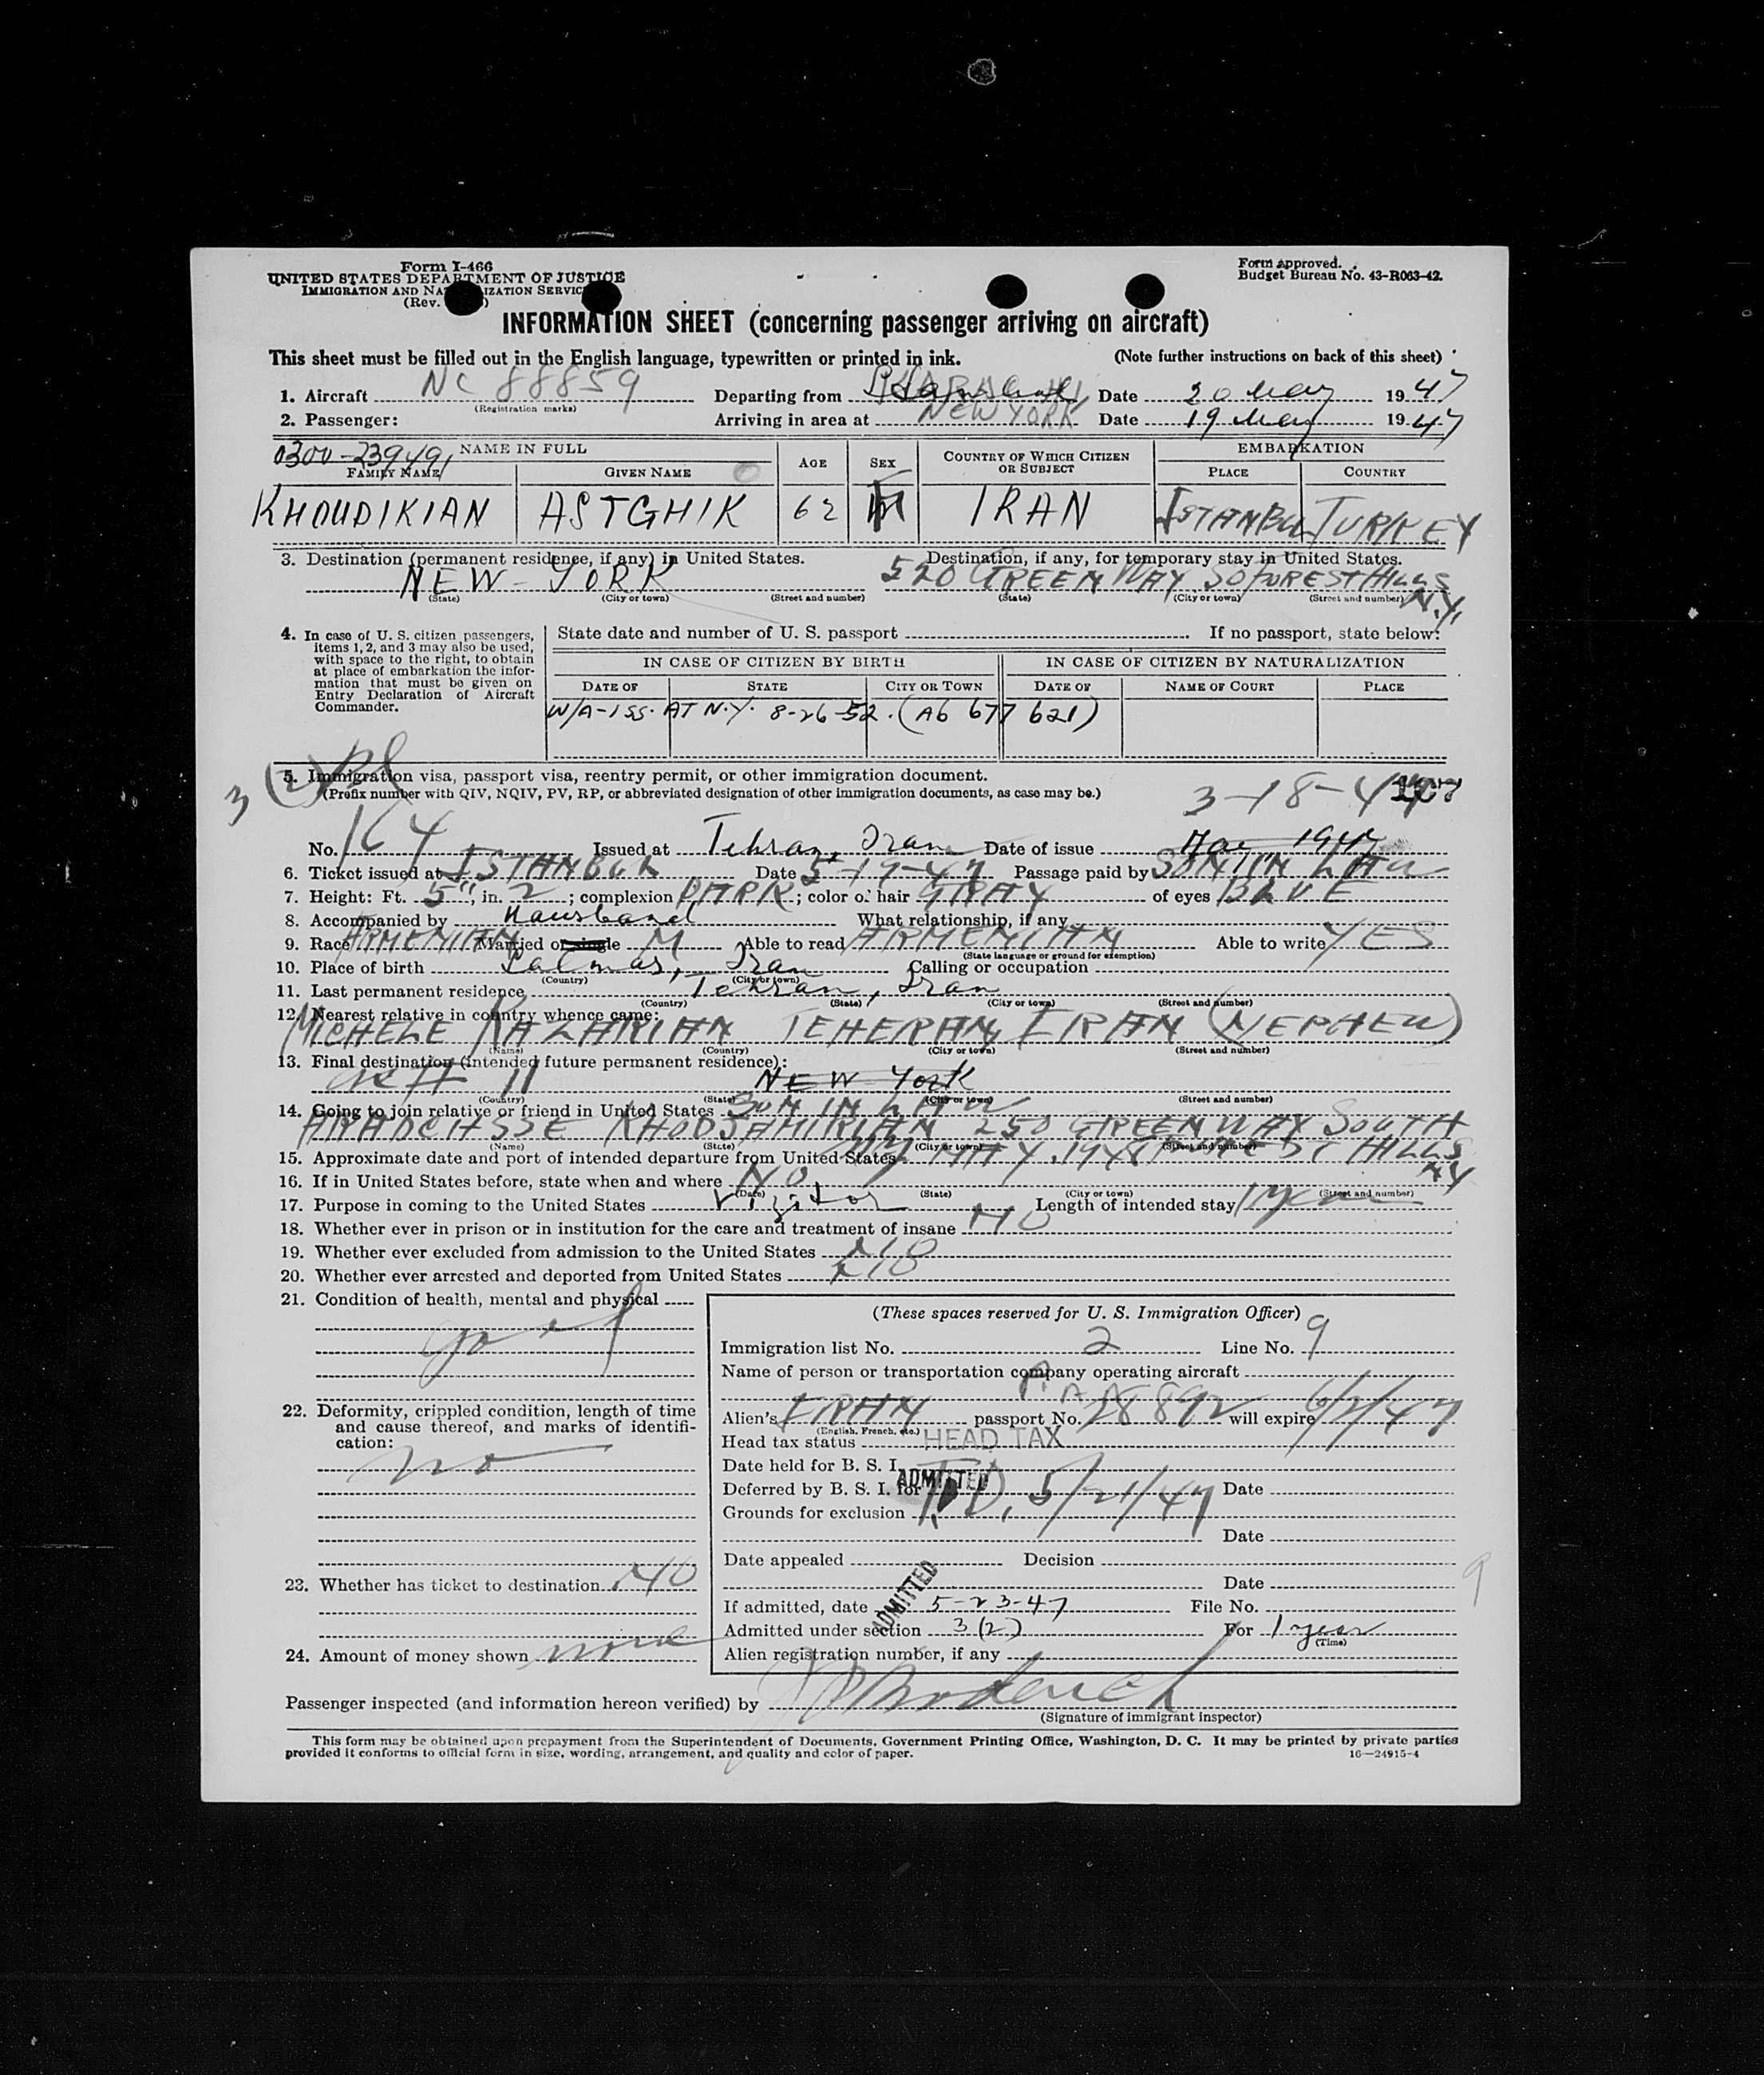 Form I-466
UNITED STATES DEPARTMENT OF JUSTICE
IMMIGRATION AND NATURALIZATION SERVICE
(Rev. )
Form approved.
Budget Bureau No. 43-R063-42.
INFORMATION SHEET (concerning passenger arriving on aircraft)
This sheet must be filled out in the English language, typewritten or printed in ink. (Note further instructions on back of this sheet)
1. Aircraft NC 88859 Departing from Date 20 May 1947
(Registration marks)
2. Passenger: Arriving in area at NEW YORK Date 19 May 1947
0300-23949 NAME IN FULL AGE SEX COUNTRY OF WHICH CITIZEN OR SUBJECT EMBARKATION
FAMILY NAME GIVEN NAME PLACE COUNTRY
KHOUDIKIAN ASTGHIK 62 IRAN ISTANBUL TURKEY
3. Destination (permanent residence, if any) in United States. Destination, if any, for temporary stay in United States.
NEW-YORK 520 GREEN WAY SO FOREST HILLS
(State) (City or town) (Street and number) (State) (City or town) (Street and number) N.Y.
4. In case of U. S. citizen passengers, items 1, 2, and 3 may also be used, with space to the right, to obtain at place of embarkation the information that must be given on Entry Declaration of Aircraft Commander.
State date and number of U. S. passport . If no passport, state below:
IN CASE OF CITIZEN BY BIRTH IN CASE OF CITIZEN BY NATURALIZATION
DATE OF STATE CITY OR TOWN DATE OF NAME OF COURT PLACE
W/A-ISS. AT N.Y. 8-26-52. (A6 677 621)
3 (2)
5. Immigration visa, passport visa, reentry permit, or other immigration document.
(Prefix number with QIV, NQIV, PV, RP, or abbreviated designation of other immigration documents, as case may be.) 3-18-47
No. 164 Issued at Tehran, Iran Date of issue Mar 1947
6. Ticket issued at ISTANBUL Date 5-19-47 Passage paid by SON IN LAW
7. Height: Ft. 5", in. 2; complexion DARK; color of hair GRAY of eyes BLUE
8. Accompanied by Hausband What relationship, if any
9. Race ARMENIAN Married or single M Able to read ARMENIAN Able to write YES
(State language or ground for exemption)
10. Place of birth Salmas, Iran Calling or occupation
(Country) (City or town)
11. Last permanent residence Tehran, Iran
(Country) (State) (City or town) (Street and number)
12. Nearest relative in country whence came:
MICHELE KAZARIAN TEHERAN IRAN (NEPHEW)
(Name) (Country) (City or town) (Street and number)
13. Final destination (intended future permanent residence):
as # 11 NEW York
(Country) (State) (City or town) (Street and number)
14. Going to join relative or friend in United States SON IN LAW
KHODJAMIRIAN 250 GREENWAY SOUTH
(Name) (State) (City or town) (Street and number)
15. Approximate date and port of intended departure from United States NY MAY. 1948 FOREST HILLS
NY
16. If in United States before, state when and where NO
(Date) (State) (City or town) (Street and number)
17. Purpose in coming to the United States Visitor Length of intended stay 1 year
18. Whether ever in prison or in institution for the care and treatment of insane NO
19. Whether ever excluded from admission to the United States NO
20. Whether ever arrested and deported from United States NO
21. Condition of health, mental and physical
good
22. Deformity, crippled condition, length of time and cause thereof, and marks of identification:
no
23. Whether has ticket to destination NO
24. Amount of money shown none
(These spaces reserved for U. S. Immigration Officer)
Immigration list No. 2 Line No. 9
Name of person or transportation company operating aircraft
P.A.A.
Alien's IRAN passport No. 28892 will expire 6/2/47
(English, French, etc.)
Head tax status HEAD TAX
Date held for B. S. I.
ADMITTED
Deferred by B. S. I. for T.D. 5/21/47 Date
Grounds for exclusion
Date
Date appealed Decision
Date
ADMITTED
9
If admitted, date 5-23-47 File No.
Admitted under section 3(2) For 1 year
(Time)
Alien registration number, if any
Passenger inspected (and information hereon verified) by
(Signature of immigrant inspector)
This form may be obtained upon prepayment from the Superintendent of Documents, Government Printing Office, Washington, D. C. It may be printed by private parties
provided it conforms to official form in size, wording, arrangement, and quality and color of paper. 16—24915-4